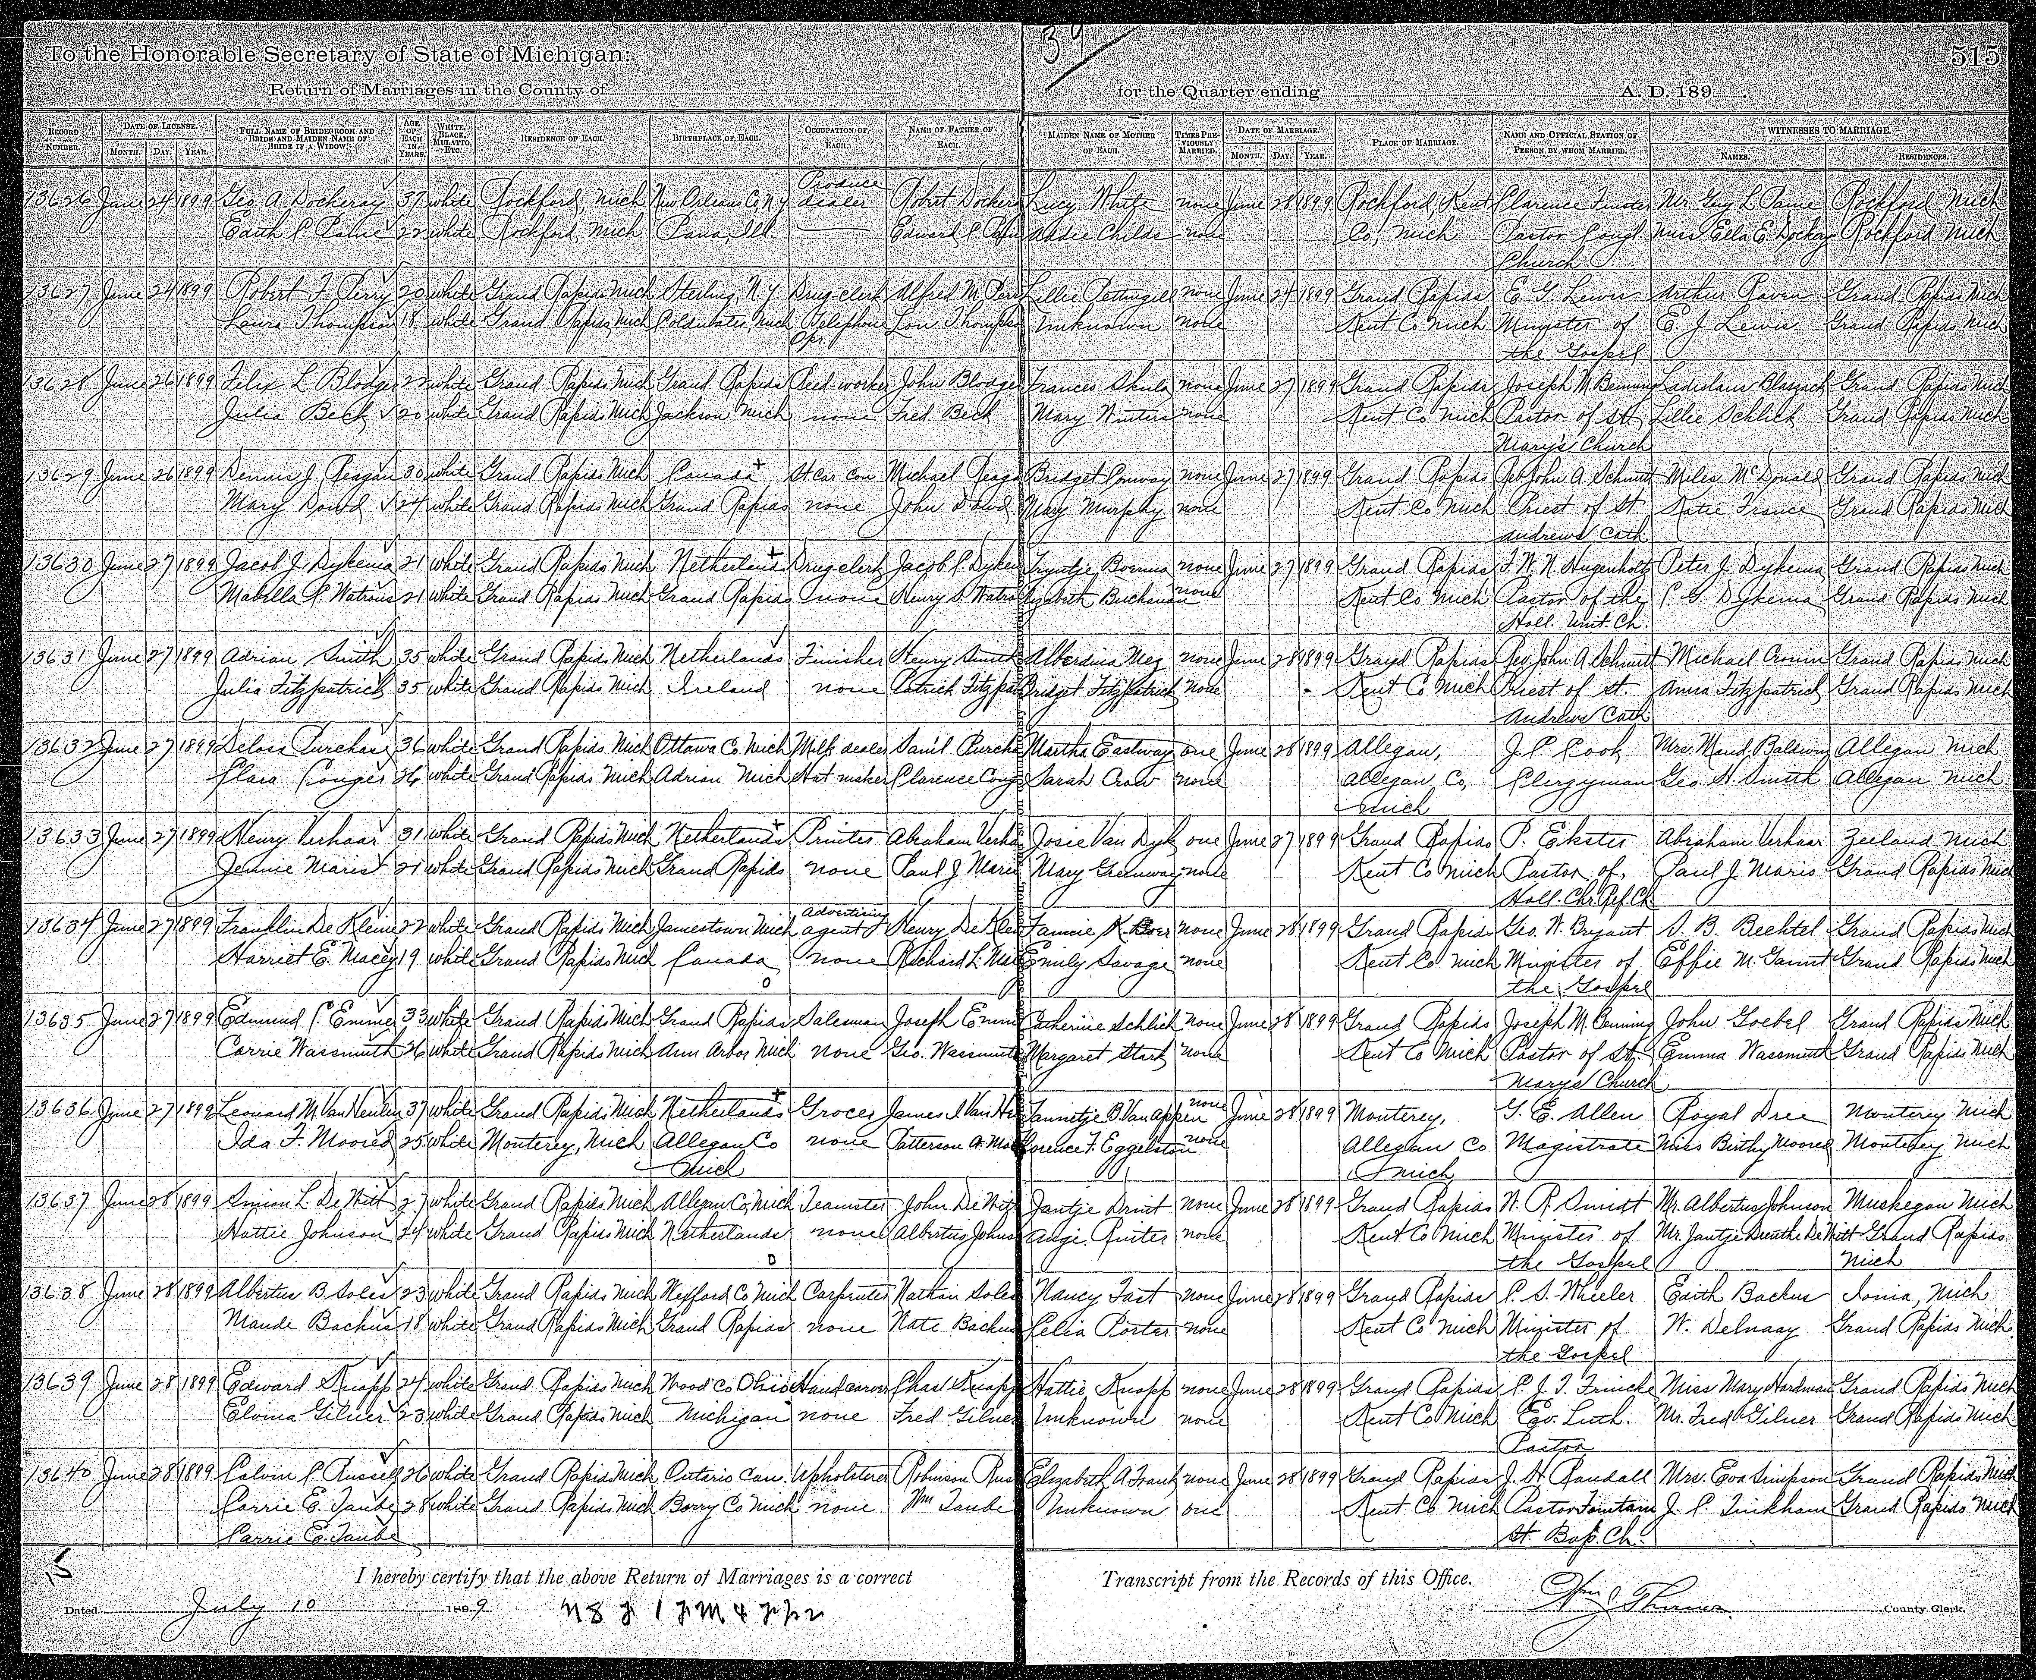 515
To the Honorable Secretary of State of Michigan:
Return of Marriages in the County of for the Quarter ending A. D. 189
RECORD NUMBER. DATE OF LICENSE. MONTH. DAY. YEAR. FULL NAME OF BRIDEGROOM AND BRIDE AND MAIDEN NAME OF BRIDE IF A WIDOW. AGE OF EACH IN YEARS. WHITE, BLACK, MULATTO, ETC. RESIDENCE OF EACH. BIRTHPLACE OF EACH. OCCUPATION OF EACH. NAME OF FATHER OF EACH. MAIDEN NAME OF MOTHER OF EACH. TIMES PREVIOUSLY MARRIED. DATE OF MARRIAGE. MONTH. DAY. YEAR. PLACE OF MARRIAGE. NAME AND OFFICIAL STATION OF PERSON BY WHOM MARRIED. WITNESSES TO MARRIAGE. NAMES. RESIDENCES.
Produce
13626 June 24 1899 Geo A. Dockeray 37 white Rockford, Mich New Orleans Co N.Y dealer Robert Dockera Lucy White none June 28 1899 Rockford, Kent Clarence Mr. Guy L. Paine Rockford Mich
Edith C. 22 white Rockford, Mich Pana, Ill. Edward C. Childs none Co, Mich Pastor Cong'l Miss Ella E. Dockray Rockford Mich
Church
13627 June 24 1899 Robert F. Perry 20 white Grand Rapids, Mich Sterling, N.Y Drug clerk Alfred M. Per Lillie Pettingill none June 24 1899 Grand Rapids E. G. Lewis Arthur Raven Grand Rapids Mich
Laura Thompson 18 white Grand Rapids, Mich Coldwater, Mich Telephone Lon Thompson Unknown none Kent Co Mich Minister of E. J. Lewis Grand Rapids Mich
Opr. the Gospel
13628 June 26 1899 Felix L Blodge 22 white Grand Rapids, Mich Grand Rapids Reed worker John Blodge Frances Skula none June 27 1899 Grand Rapids Joseph M. Benning Ladislaus Grand Rapids Mich
Julia Beck 20 white Grand Rapids, Mich Jackson Mich none Fred Beck Mary Winters none Kent Co Mich Pastor of St Lillie Schlick Grand Rapids Mich
Mary's Church
13629 June 26 1899 Dennis J. Reagan 30 white Grand Rapids Mich Canada St Car Con Michael Reaga Bridget Conway none June 27 1899 Grand Rapids Rev John A. Schmitt Miles McDonald Grand Rapids Mich
Mary Dowd 24 white Grand Rapids Mich Grand Rapids none John Dowd Mary Murphy none Kent Co Mich Priest of St Katie France Grand Rapids Mich
Andrews Cath
13630 June 27 1899 Jacob J. Dykema 21 white Grand Rapids Mich Netherlands Drug clerk Jacob P. Dyke Tryntje none June 27 1899 Grand Rapids F. W. N. Hugenholtz Peter J. Dykema Grand Rapids Mich
Mabella C. Watrous 21 white Grand Rapids Mich Grand Rapids none Henry S. Watro Elizabeth Buchanan none Kent Co Mich Pastor of the P. G. Dykema Grand Rapids Mich
Holl. Unit. Ch.
13631 June 27 1899 Adrian Smith 35 white Grand Rapids Mich Netherlands Finisher Henry Smith Alberdina none June 28 1899 Grand Rapids Rev John A. Schmitt Michael Cronin Grand Rapids Mich
Julia Fitzpatrick 35 white Grand Rapids Mich Ireland none Patrick Fitzpa Bridget Fitzpatrick none Kent Co Mich Priest of St. Anna Fitzpatrick Grand Rapids Mich
Andrews Cath
13632 June 27 1899 Delos Purchase 36 white Grand Rapids, Mich Ottawa Co Mich Milk dealer Sam'l Purcha Martha Eastway one June 28 1899 Allegan, J. P. Cook Mrs. Maud Allegan Mich
Clara Conger 26 white Grand Rapids, Mich Adrian Mich Hat maker Clarence Cong Sarah Crow none Allegan Co, Clergyman Geo H. Smith Allegan Mich
Mich
13633 June 27 1899 Henry Verhaar 31 white Grand Rapids Mich Netherlands Printer Abraham Verha Josie Van Dyk one June 27 1899 Grand Rapids P. Ekster Abraham Verhaar Zeeland Mich
Jennie Maris 21 white Grand Rapids Mich Grand Rapids none Paul J. Maris Mary Greenway none Kent Co Mich Pastor of Paul J. Maris Grand Rapids Mich
Holl. Chr. Ref. Ch
Advertising
13634 June 27 1899 Franklin De Kleine 22 white Grand Rapids Mich Jamestown Mich agent Henry De Klei Fannie K. Boer none June 28 1899 Grand Rapids Geo. W. Bryant S. B. Bechtel Grand Rapids Mich
Harriet E. Macey 19 white Grand Rapids Mich Canada none Richard L. Mac Emily Savage none Kent Co Mich Minister of Effie M. Grand Rapids Mich
the Gospel
13635 June 27 1899 Edmund C. Emmer 33 white Grand Rapids Mich Grand Rapids Salesman Joseph Emme Catherine Schlick none June 28 1899 Grand Rapids Joseph M. Benning John Goebel Grand Rapids Mich
Carrie Wassmuth 26 white Grand Rapids Mich Ann Arbor Mich none Geo. Wassmuth Margaret Stark none Kent Co Mich Pastor of St Emma Wassmuth Grand Rapids Mich
Marys Church
13636 June 27 1899 Leonard M. Van Heulen 37 white Grand Rapids Mich Netherlands Grocer James I. Van He Jannetje B. Van Appen none June 28 1899 Monterey, G. E. Allen Royal Dree Monterey Mich
Ida F. Moored 25 white Monterey, Mich Allegan Co none Patterson A. Moo Florence F. Eggelston none Allegan Co Magistrate Miss Birthy Moored Monterey Mich
Mich Mich
13637 June 28 1899 Simon L. De Witt 27 white Grand Rapids Mich Allegan Co, Mich Teamster John De Witt Jantje Drint none June 28 1899 Grand Rapids W. R. Smidt Mr. Albertus Johnson Muskegon Mich
Hattie Johnson 24 white Grand Rapids Mich Netherlands none Albertus Johns Angi. Ruiter none Kent Co Mich Minister of Mr. Jantje Drenthe De Witt Grand Rapids
the Gospel Mich
13638 June 28 1899 Albertus B Soles 23 white Grand Rapids Mich Wexford Co Mich Carpenter Nathan Soles Nancy Fast none June 28 1899 Grand Rapids C. S. Wheeler Edith Backus Ionia, Mich
Maude Backus 18 white Grand Rapids Mich Grand Rapids none Nate Backus Celia Porter none Kent Co Mich Minister of W. Delnaay Grand Rapids Mich
the Gospel
13639 June 28 1899 Edward Knapp 24 white Grand Rapids Mich Wood Co Ohio Hand carver Chas Knapp Hattie Knapp none June 28 1899 Grand Rapids C. J. T. Frincke Miss Mary Hardman Grand Rapids Mich
Elvina Gilner 23 white Grand Rapids Mich Michigan none Fred Gilner Unknown none Kent Co Mich Ev. Luth. Mr. Fred Gilner Grand Rapids Mich
Pastor
13640 June 28 1899 Calvin C. Russell 26 white Grand Rapids Mich Ontario Can. Upholsterer Robinson Rus Elizabeth A. Frank none June 28 1899 Grand Rapids J. H. Randall Mrs. Eva Simpson Grand Rapids Mich
Carrie E. Taube 28 white Grand Rapids Mich Barry Co Mich none Wm Taube Unknown one Kent Co Mich Pastor Fountain J. C. Tinkham Grand Rapids Mich
Carrie E. Taube St. Bap. Ch.
15
I hereby certify that the above Return of Marriages is a correct Transcript from the Records of this Office.
Dated July 10 1899 County Clerk.